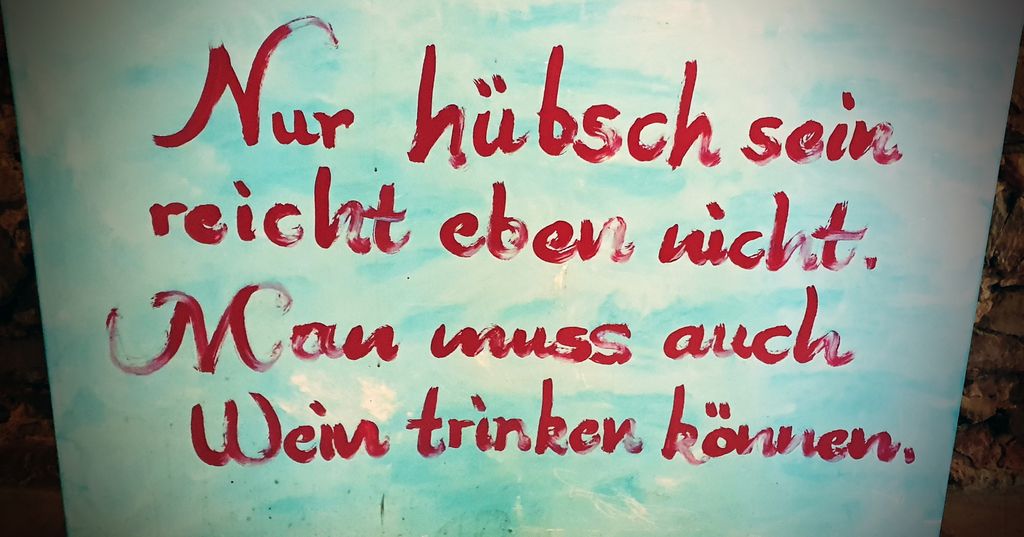 Nur hübsch sein
reicht eben nicht.
Man muss auch
Wein trinken können.